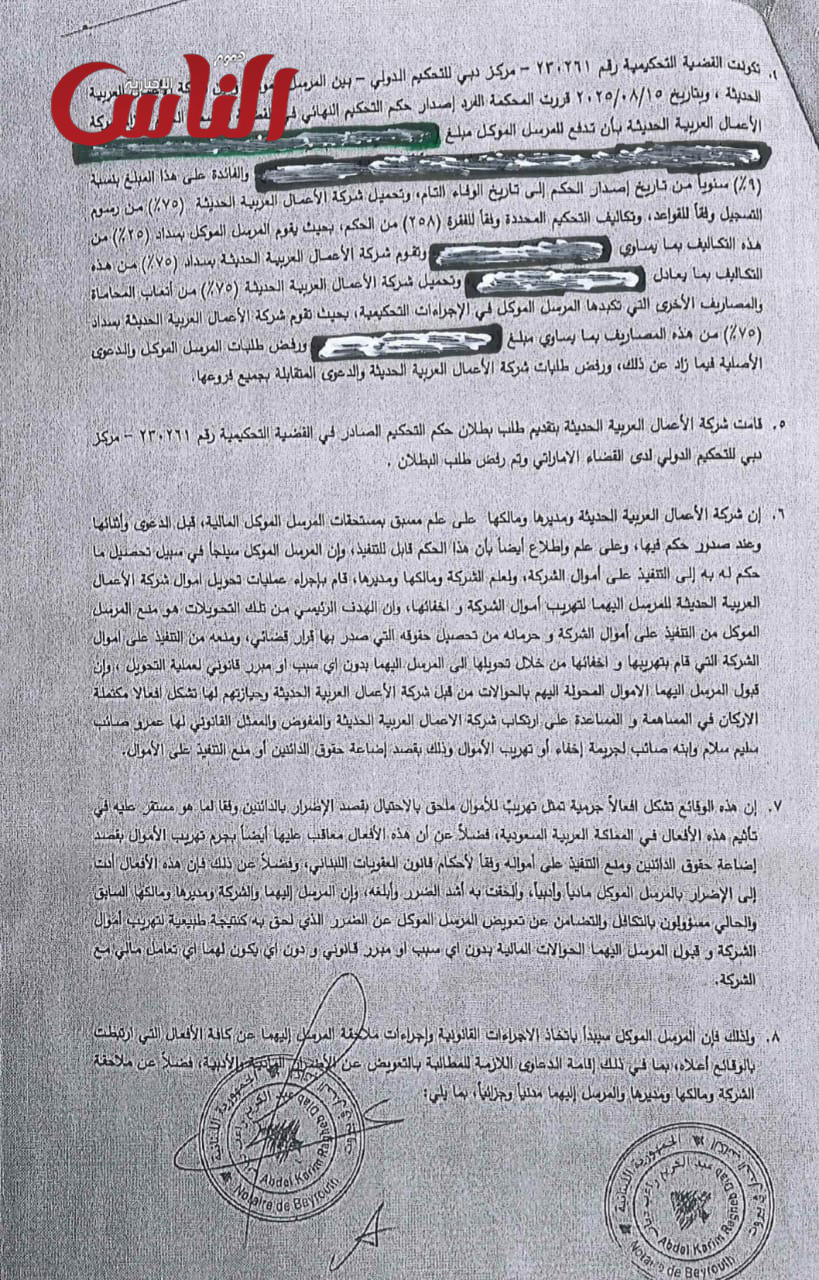 هموم
الناس
الاخبارية
تكونت القضية التحكيمية رقم ٢٣٠٢٦١ – مركز دبي للتحكيم الدولي – بين المرسل الموكل العربية
الحديثة ، وبتاريخ ٢٠٢٥/٠٨/١٥ قررت المحكمة الفرد إصدار حكم التحكيم النهائي في
الأعمال العربية الحديثة بأن تدفع للمرسل الموكل مبلغ
والفائدة على هذا المبلغ بنسبة
(٩٪) سنوياً من تاريخ إصدار الحكم إلى تاريخ الوفاء التام، وتحميل شركة الأعمال العربية الحديثة (٧٥٪) من رسوم
التسجيل وفقاً للقواعد، وتكاليف التحكيم المحددة وفقاً للفقرة (٢٥٨) من الحكم، بحيث يقوم المرسل الموكل بسداد (٢٥٪) من
هذه التكاليف بما يساوي وتقوم شركة الأعمال العربية الحديثة بسداد (٧٥٪) من هذه
التكاليف بما يعادل وتحميل شركة الأعمال العربية الحديثة (٧٥٪) من أتعاب المحاماة
والمصاريف الأخرى التي تكبدها المرسل الموكل في الإجراءات التحكيمية، بحيث تقوم شركة الأعمال العربية الحديثة بسداد
(٧٥٪) من هذه المصاريف بما يساوي مبلغ ورفض طلبات المرسل الموكل والدعوى
الأصلية فيما زاد عن ذلك، ورفض طلبات شركة الأعمال العربية الحديثة والدعوى المتقابلة بجميع فروعها.
٥. قامت شركة الأعمال العربية الحديثة بتقديم طلب بطلان حكم التحكيم الصادر في القضية التحكيمية رقم ٢٣٠٢٦١ – مركز
دبي للتحكيم الدولي لدى القضاء الاماراتي وتم رفض طلب البطلان .
٦. إن شركة الأعمال العربية الحديثة ومديرها ومالكها على علم مسبق بمستحقات المرسل الموكل المالية، قبل الدعوى وأثنائها
وعند صدور حكم فيها، وعلى علم وإطلاع أيضاً بأن هذا الحكم قابل للتنفيذ، وإن المرسل الموكل سيلجأ في سبيل تحصيل ما
حكم له به إلى التنفيذ على أموال الشركة، ولعلم الشركة ومالكها ومديرها، قام بإجراء عمليات تحويل اموال شركة الأعمال
العربية الحديثة للمرسل اليهما لتهريب أموال الشركة و اخفائها، وإن الهدف الرئيسي من تلك التحويلات هو منع المرسل
الموكل من التنفيذ على أموال الشركة و حرمانه من تحصيل حقوقه التي صدر بها قرار قضائي، ومنعه من التنفيذ على اموال
الشركة التي قام بتهريبها و اخفائها من خلال تحويلها الى المرسل اليهما بدون اي سبب او مبرر قانوني لعملية التحويل ، وإن
قبول المرسل اليهما الاموال المحولة اليهم بالحوالات من قبل شركة الأعمال العربية الحديثة وحيازتهم لها تشكل افعالا مكتملة
الاركان في المساهمة و المساعدة على ارتكاب شركة الاعمال العربية الحديثة والمفوض والممثل القانوني لها عمرو صائب
سليم سلام وابنه صائب لجريمة إخفاء أو تهريب الأموال وذلك بقصد إضاعة حقوق الدائنين أو منع التنفيذ على الأموال.
٧. إن هذه الوقائع تشكل افعالاً جرمية تمثل تهريبٌ للأموال ملحق بالاحتيال بقصد الإضرار بالدائنين وفقا لما هو مستقر عليه في
تأثيم هذه الأفعال في المملكة العربية السعودية، فضلاً عن أن هذه الأفعال معاقب عليها أيضاً بجرم تهريب الأموال بقصد
إضاعة حقوق الدائنين ومنع التنفيذ على أمواله وفقاً لأحكام قانون العقوبات اللبناني، وفضلاً عن ذلك فإن هذه الأفعال أدت
إلى الإضرار بالمرسل الموكل مادياً وأدبياً، وألحقت به أشد الضرر وأبلغه، وإن المرسل إليهما والشركة ومديرها ومالكها السابق
والحالي مسؤولون بالتكافل والتضامن عن تعويض المرسل الموكل عن الضرر الذي لحق به كنتيجة طبيعية لتهريب أموال
الشركة و قبول المرسل اليهما الحوالات المالية بدون اي سبب او مبرر قانوني و دون أي يكون لهما اي تعامل مالي مع
الشركة.
٨. ولذلك فإن المرسل الموكل سيبدأ باتخاذ الاجراءات القانونية وإجراءات ملاحقة المرسل إليهما عن كافة الأفعال التي ارتبطت
بالوقائع أعلاه، بما في ذلك إقامة الدعاوى اللازمة للمطالبة بالتعويض عن الأضرار المادية والأدبية، فضلاً عن ملاحقة
الشركة ومالكها ومديرها والمرسل إليهما مدنياً وجزائياً، بما يلي:
الجمهورية اللبنانية
Abdel Karim Ragheb Diab
Notaire de Beyrouth
الجمهورية اللبنانية
الكاتب العدل في بيروت
عبد الكريم راغب دياب
Abdel Karim Ragheb Diab
Notaire de Beyrouth